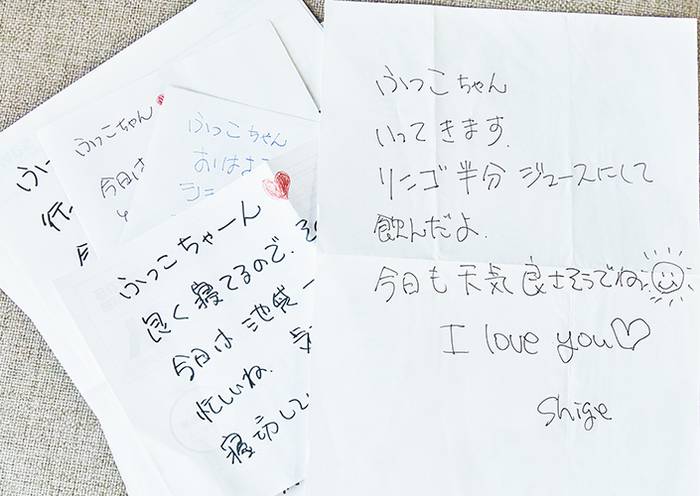 ふっこちゃん
いってきます.
リンゴ半分 ジュースにして
飲んだよ.
今日も 天気良さそうでね
I love you♡
Shige
ふっこちゃーん
良く寝てるので、そ
今日は 池袋
忙しいね.
寝
ふっこちゃん
おはよ
ふっこちゃん
今日は
ふ
忙
今